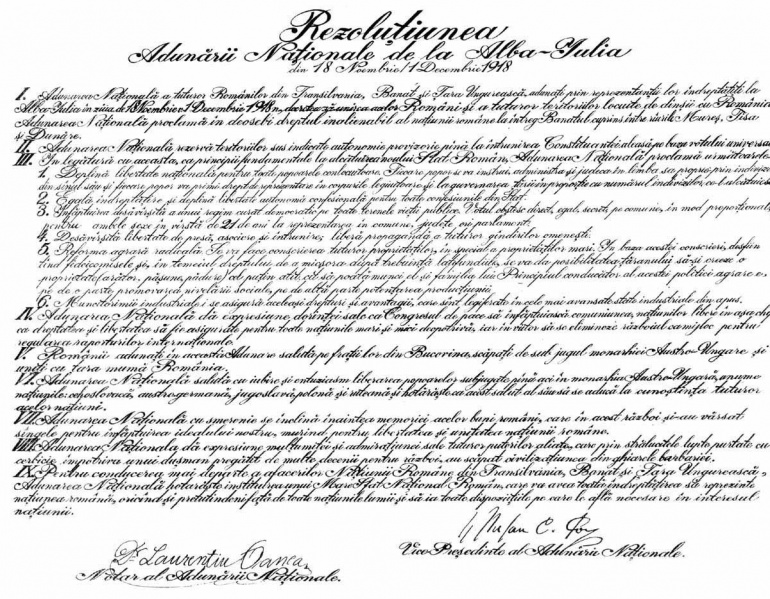 Rezoluțiunea
Adunării Naționale de la Alba-Iulia
din 18 Noembrie/1 Decembrie 1918
I. Adunarea Națională a tuturor Românilor din Transilvania, Banat și Țara Ungurească, adunați prin reprezentanții lor îndreptățiți la
Alba-Iulia în ziua de 18 Noembrie/1 Decembrie 1918, decretează unirea acelor Români și a tuturor teritoriilor locuite de dînșii cu România.
Adunarea Națională proclamă îndeosebi dreptul inalienabil al națiunii române la întreg Banatul cuprins între rîurile Mureș, Tisa
și Dunăre.
II. Adunarea Națională rezervă teritoriilor sus indicate autonomie provizorie pînă la întrunirea Constituantei aleasă pe baza votului universal
III. În legătură cu aceasta, ca principii fundamentale la alcătuirea noului Stat Român, Adunarea Națională proclamă următoarele:
1. Deplină libertate națională pentru toate popoarele conlocuitoare. Fiecare popor se va instrui, administra și judeca în limba sa proprie prin indivizi
din sînul său și fiecare popor va primi drept de reprezentare în corpurile legiuitoare și la guvernarea țării în proporție cu numărul indivizilor, ce-l alcătuiesc
2. Egală îndreptățire și deplină libertate autonomă confesională pentru toate confesiunile din Stat.
3. Înfăptuirea desăvîrșită a unui regim curat democratic pe toate terenele vieții publice. Votul obștesc direct, egal, secret, pe comune, în mod proporțional,
pentru ambele sexe în vîrstă de 21 de ani la reprezentarea în comune, județe ori parlament.
4. Desăvîrșită libertate de presă, asociere și întrunire, liberă propagandă a tuturor gîndirilor omenești.
5. Reforma agrară radicală. Se va face conscrierea tuturor proprietăților, în special a proprietăților mari. În baza acestei conscrieri, desființ
tînd fedeicomisele și, în temeiul dreptului de a micșora după trebuință latifundiile, se va da posibilitatea țăranului să-și creeze o
proprietate (arător, pășune, pădure) cel puțin atît cît să poată munci el și familia lui. Principiul conducător al acestei politici agrare e,
pe de o parte promovarea nivelării sociale, pe de altă parte potentarea producțiunii.
6. Muncitorimii industriale i se asigură aceleași drepturi și avantagii, care sînt legiferate în cele mai avansate state industriale din apus.
IV. Adunarea Națională dă expresiune dorinței sale, ca Congresul de pace să înfăptuiască comuniunea națiunilor libere în așa chip,
ca dreptatea și libertatea să fie asigurate pentru toate națiunile mari și mici deopotrivă, iar în viitor să se elimineze războiul ca mijloc pentru
regularea raporturilor internaționale.
V. Românii adunați în această Adunare salută pe frații lor din Bucovina, scăpați de sub jugul monarhiei Austro-Ungare și
uniți cu țara mumă România.
VI. Adunarea Națională salută cu iubire și entuziasm liberarea popoarelor subjugate pînă aci în monarhia Austro-Ungară, anume
națiunile: cehoslovacă, austrogermană, jugoslavă, polonă și ruteană și hotărăște ca acest salut al său să se aducă la cunoștința tuturor
acelor națiuni.
VII. Adunarea Națională cu smerenie se închină înaintea memoriei acelor buni români, care în acest război și-au vărsat
sîngele pentru înfăptuirea idealului nostru, murind pentru libertatea și unitatea națiunii române.
VIII. Adunarea Națională dă expresiune mulțumitei și admirațiunei sale tuturor puterilor aliate, care prin strălucitele lupte purtate cu
cerbicie împotriva unui dușman pregătit de multe decenii pentru război, au scăpat civilizațiunea din ghiarele barbariei.
IX. Pentru conducerea mai departe a afacerilor Națiunii Române din Transilvania, Banat și Țara Ungurească,
Adunarea Națională hotărește instituirea unui Mare Sfat Național Român, care va avea toată îndreptățirea să reprezinte
națiunea română, oricînd și pretutindeni, față de toate națiunile lumii și să ia toate dispozițiile pe care le află necesare în interesul
națiunii.
Dr Laurențiu Oanea
Notar al Adunării Naționale.
Vice Președinte al Adunării Naționale.